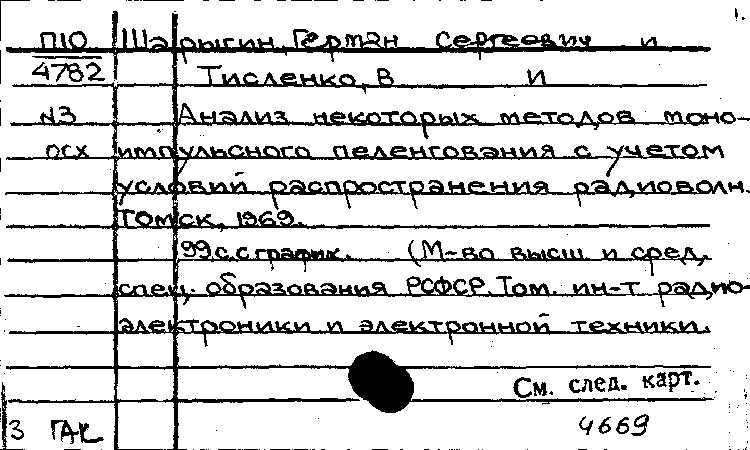 1.
П10 Шарыгин, Герман Сергеевич и
4782 Тисленко, В И
N3 Анализ некоторых методов моно-
осх импульсного пеленгования с учетом
условий распространения радиоволн.
Томск, 1969.
99 с. с график. (М-во высш и сред,
спец. образования РСФСР. Том. ин-т радио-
электроники и электронной техники.
См. след. карт.
3 ГАК 4669